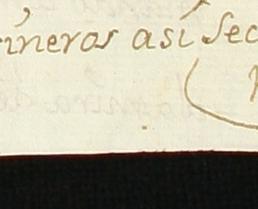 rineros así sec